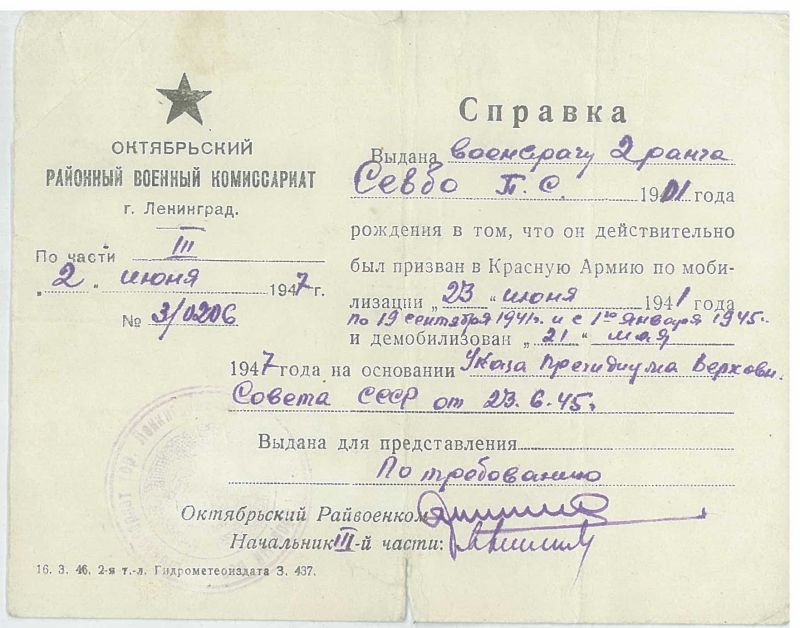 ОКТЯБРЬСКИЙ
РАЙОННЫЙ ВОЕННЫЙ КОМИССАРИАТ
г. Ленинград.
По части III
„2“ июня 1947 г.
№ 3/0206
Справка
Выдана военврачу 2 ранга
Севбо П. С. 1901 года
рождения в том, что он действительно
был призван в Красную Армию по моби-
лизации „23“ июня 1941 года
по 19 сентября 1941г. и с 1го января 1945г.
и демобилизован „21“ мая
1947 года на основании Указа Президиума Верховн.
Совета СССР от 23.6.45г.
Выдана для представления
По требованию
Октябрьский Райвоенком
Начальник III-й части:
16. 3. 46. 2-я т.-л. Гидрометеоиздата З. 437.